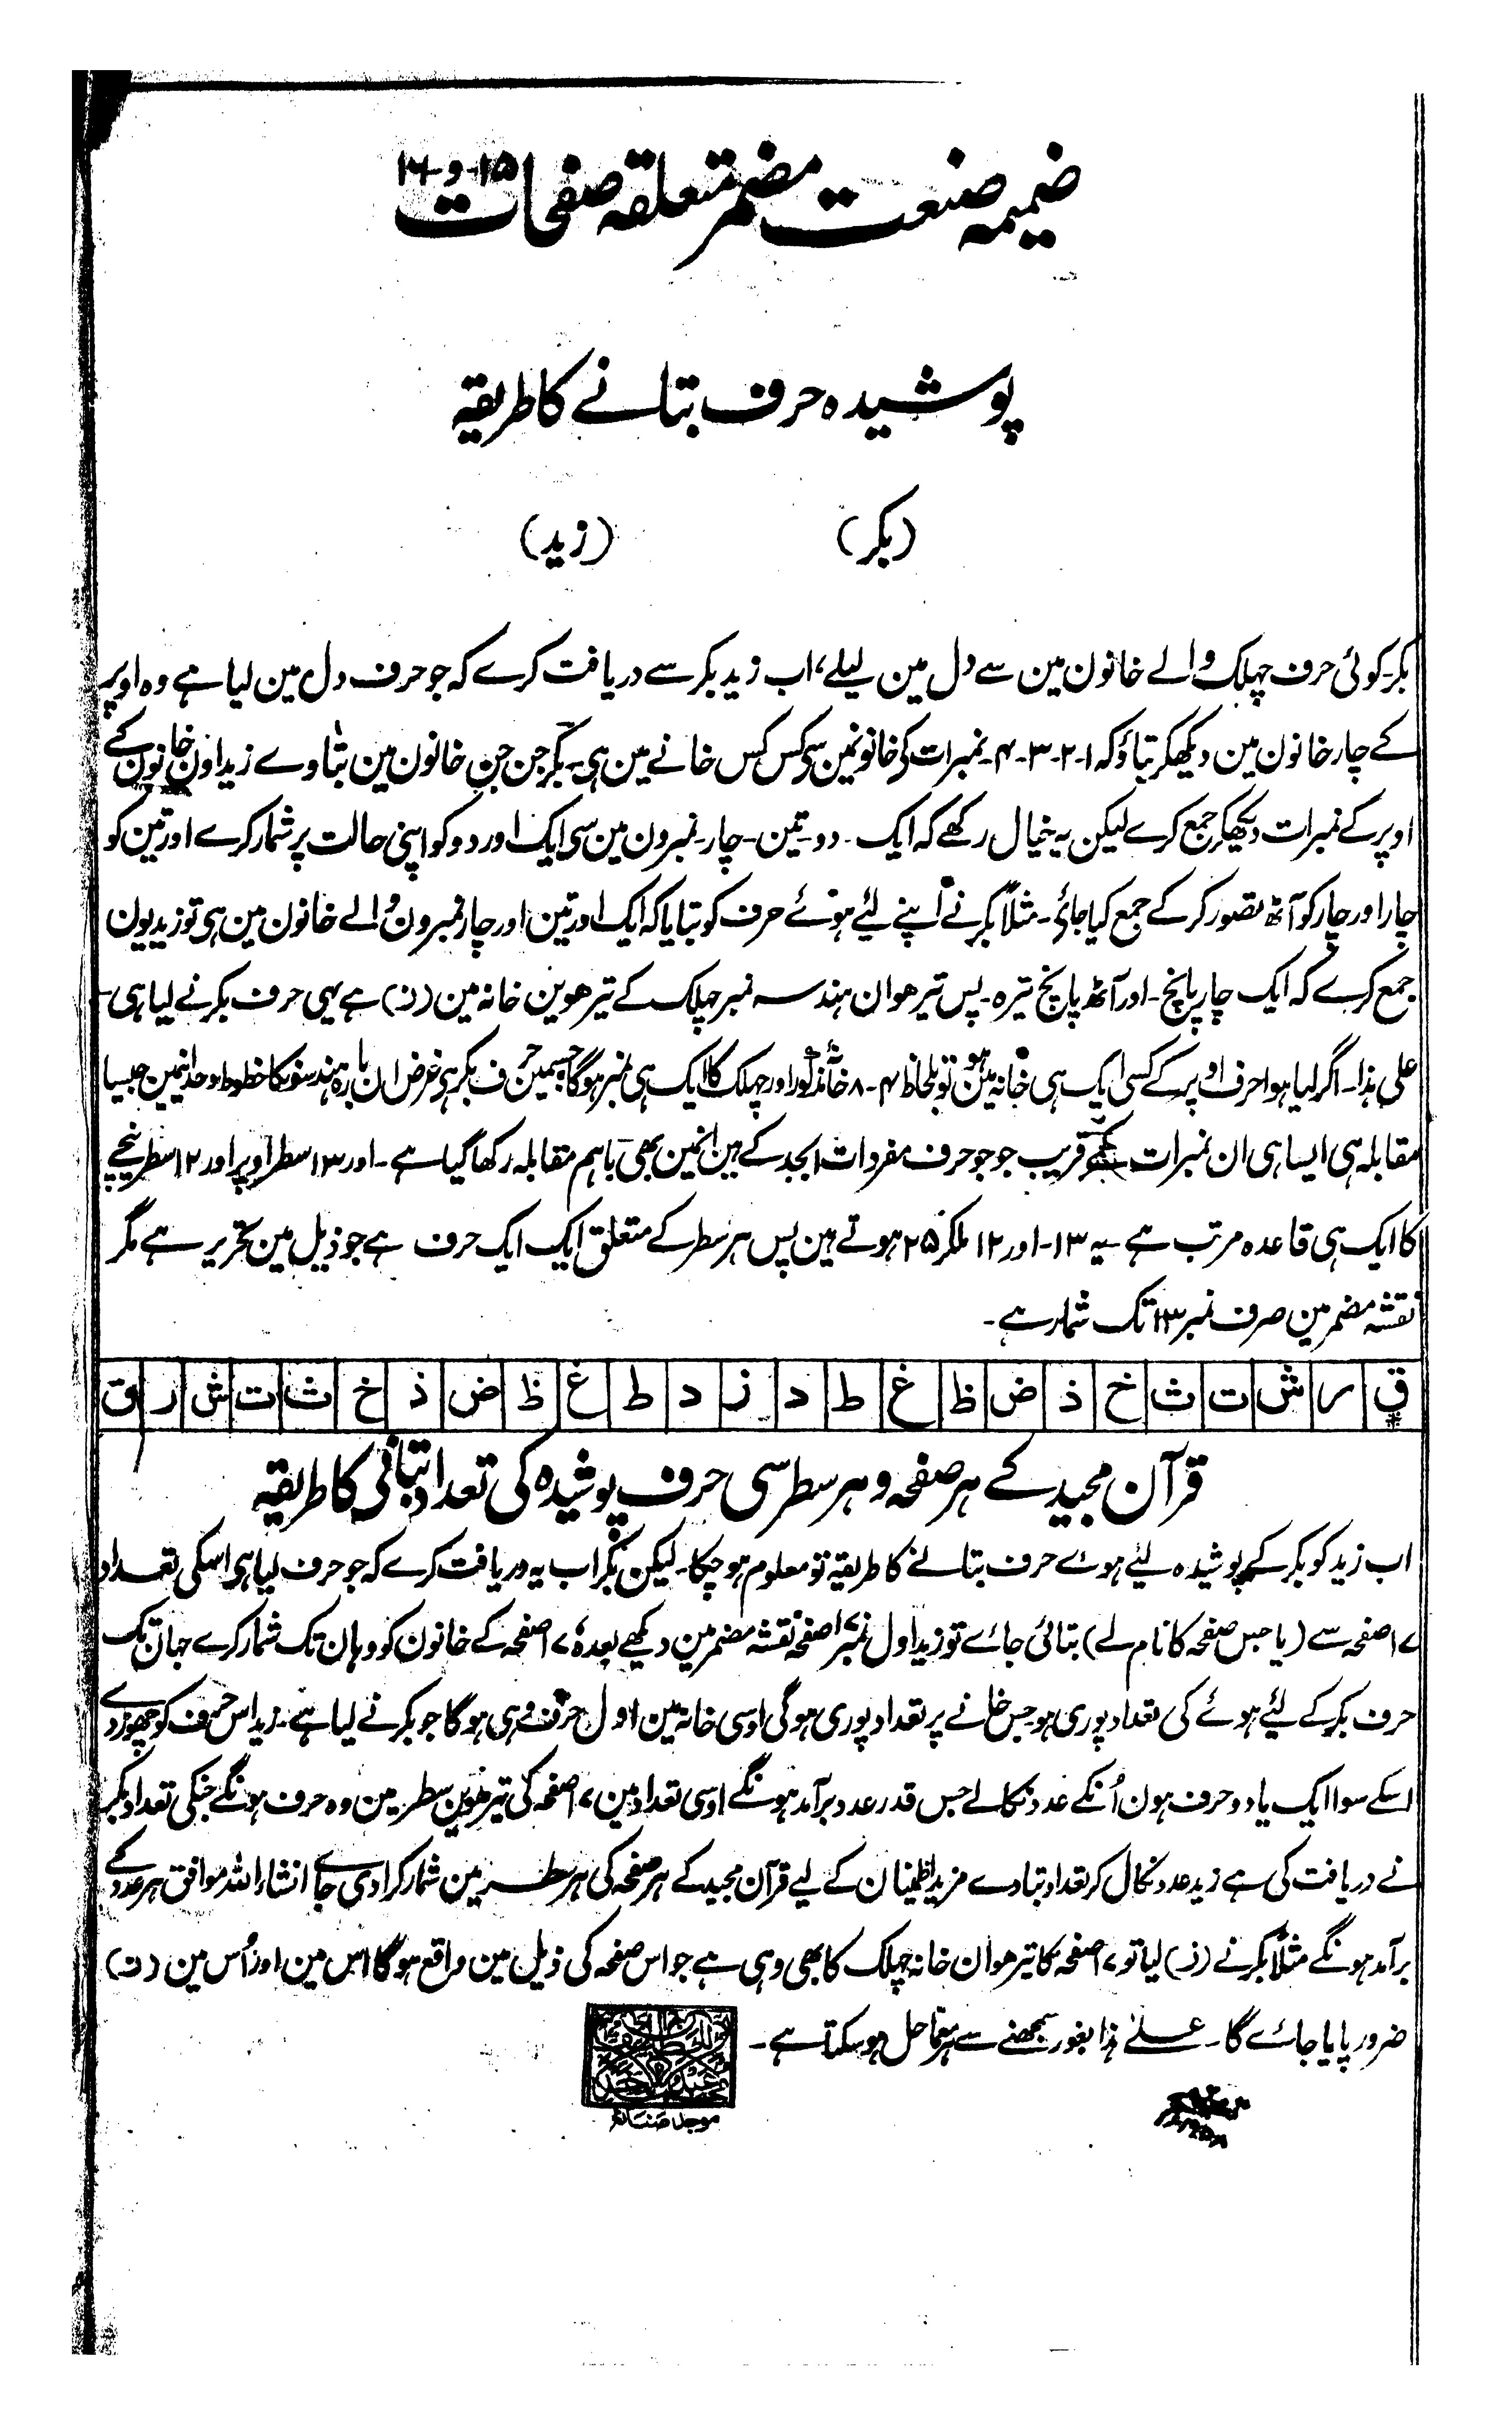 ضمیمہ صنعت مضمر متعلقہ صفحات ۱۵-و-۱۶
پوشیدہ حرف بتانے کا طریقہ
(بکر) (زید)
بکر۔ کوئی حرف چہلک والے خانون مین سے دل مین لیلے، اب زید بکر سے دریافت کرے کہ جو حرف دل مین لیا ہے وہ اوپر
کے چار خانون مین دیکھکر بتاؤ کہ ۱-۲-۳-۴- نمبرات کی خانونمین سی کس کس خانے مین ہی۔ بکر جن جن خانون مین بتاوے زید اون خانون کے
اوپر کے نمبرات دیکھکر جمع کرے لیکن یہ خیال رکھے کہ ایک - دو - تین - چار - نمبرون مین سی ایک اور دو کو اپنی حالت پر شمار کرے اور تین کو
چار اور چار کو آٹھ تصور کر کے جمع کیا جائی۔ مثلاً بکر نے اپنے لئے ہوئے حرف کو بتایا کہ ایک اور تین اور چار نمبرون والے خانون مین ہی تو زید یون
جمع کرے کہ ایک چار پانچ - اور آٹھ پانچ تیرہ - پس تیرھوان ہندسہ نمبر چہلک کے تیرھوین خانہ مین (ز) ہے یہی حرف بکر نے لیا ہی -
علی ہذا - اگر لیا ہوا حرف اوپر کے کسی ایک ہی خانہ مین ہو تو بلحاظ ۴-۸ خانہ مذکور اور چہلک کا ایک ہی نمبر ہوگا جسمین حرف بکر ہی غرض ان بارہ ہندسونکا خطوط وحدانیمین جیسا
مقابلہ ہی ایسا ہی ان نمبرات کے قریب جو جو حرف مفردات ابجد کے ہین انمین بھی باہم مقابلہ رکھا گیا ہے - اور ۱۳ سطر اوپر اور ۱۲ سطر نیچے
کا ایک ہی قاعدہ مرتب ہے - یہ ۱۳ - اور ۱۲ ملکر ۲۵ ہوتے ہین پس ہر سطر کے متعلق ایک ایک حرف ہے جو ذیل مین تحریر ہے مگر
نقشہ مضمر مین صرف نمبر ۱۳ تک شمار ہے -
ق ر ش ت ث خ ذ ض ظ غ ط د ز د ط غ ظ ض ذ خ ث ت ش ر ق
قرآن مجید کے ہر صفحہ و ہر سطر سی حرف پوشیدہ کی تعداد بتانی کا طریقہ
اب زید کو بکر کے پوشیدہ لئے ہوئے حرف بتانے کا طریقہ تو معلوم ہو چکا۔ لیکن بکر اب یہ دریافت کرے کہ جو حرف لیا ہی اسکی تعداد
۷ اصفحہ سے (یا جس صفحہ کا نام لے) بتائی جائے تو زید اول نمبر ۷ اصفحہ نقشہ مضمر مین دیکھے بعدہٗ ۷ اصفحہ کے خانون کو وہان تک شمار کرے جہان تک
حرف بکر کے لئے ہوئے کی تعداد پوری ہو جس خانے پر تعداد پوری ہوگی اوسی خانہ مین اول حرف وہی ہوگا جو بکر نے لیا ہے - زید اس حرف کو چھوڑ دے
اسکے سوا ایک یا دو حرف ہون اُنکے عدد نکالے جس قدر عدد برآمد ہونگے اوسی تعداد مین ۷ اصفحہ کی تیرھوین سطر مین وہ حرف ہونگے جنکی تعداد بکر
نے دریافت کی ہے زید عدد نکال کر تعداد بتاوے مزید اطمینان کے لیے قرآن مجید کے ہر صفحہ کی ہر سطر مین شمار کرادی جائے انشاء اللہ موافق ہر عدد کے
برآمد ہونگے مثلاً بکر نے (ز) لیا تو ۷ اصفحہ کا تیرھوان خانہ چہلک کا بھی وہی ہے جو اس صفحہ کی ذیل مین واقع ہوگا اس مین اور اُس مین (ز)
ضرور پایا جائے گا - علے ہذا بغور سمجھنے سے ہر معما حل ہو سکتا ہے -